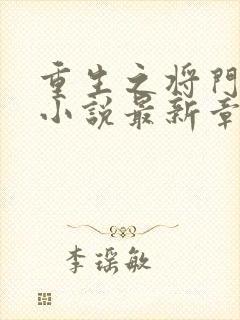 重生之将門
小説最新章
李瑶敏